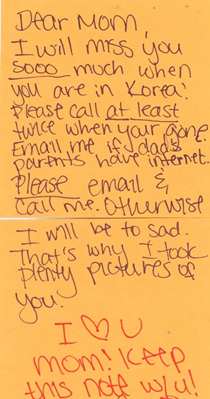 Dear Mom,
I will miss you
sooo much when
you are in Korea!
Please call at least
twice when your gone.
Email me if dad's
parents have internet..
Please email &
call me. Otherwise
I will be to sad.
That's why I took
plenty pictures of
you!
I ♡ U
mom! Keep
this note w/u!